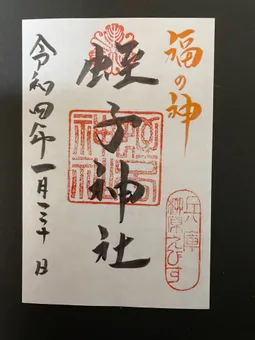 福の神
蛭子神社
令和四年一月二十日
兵庫
柳原えびす